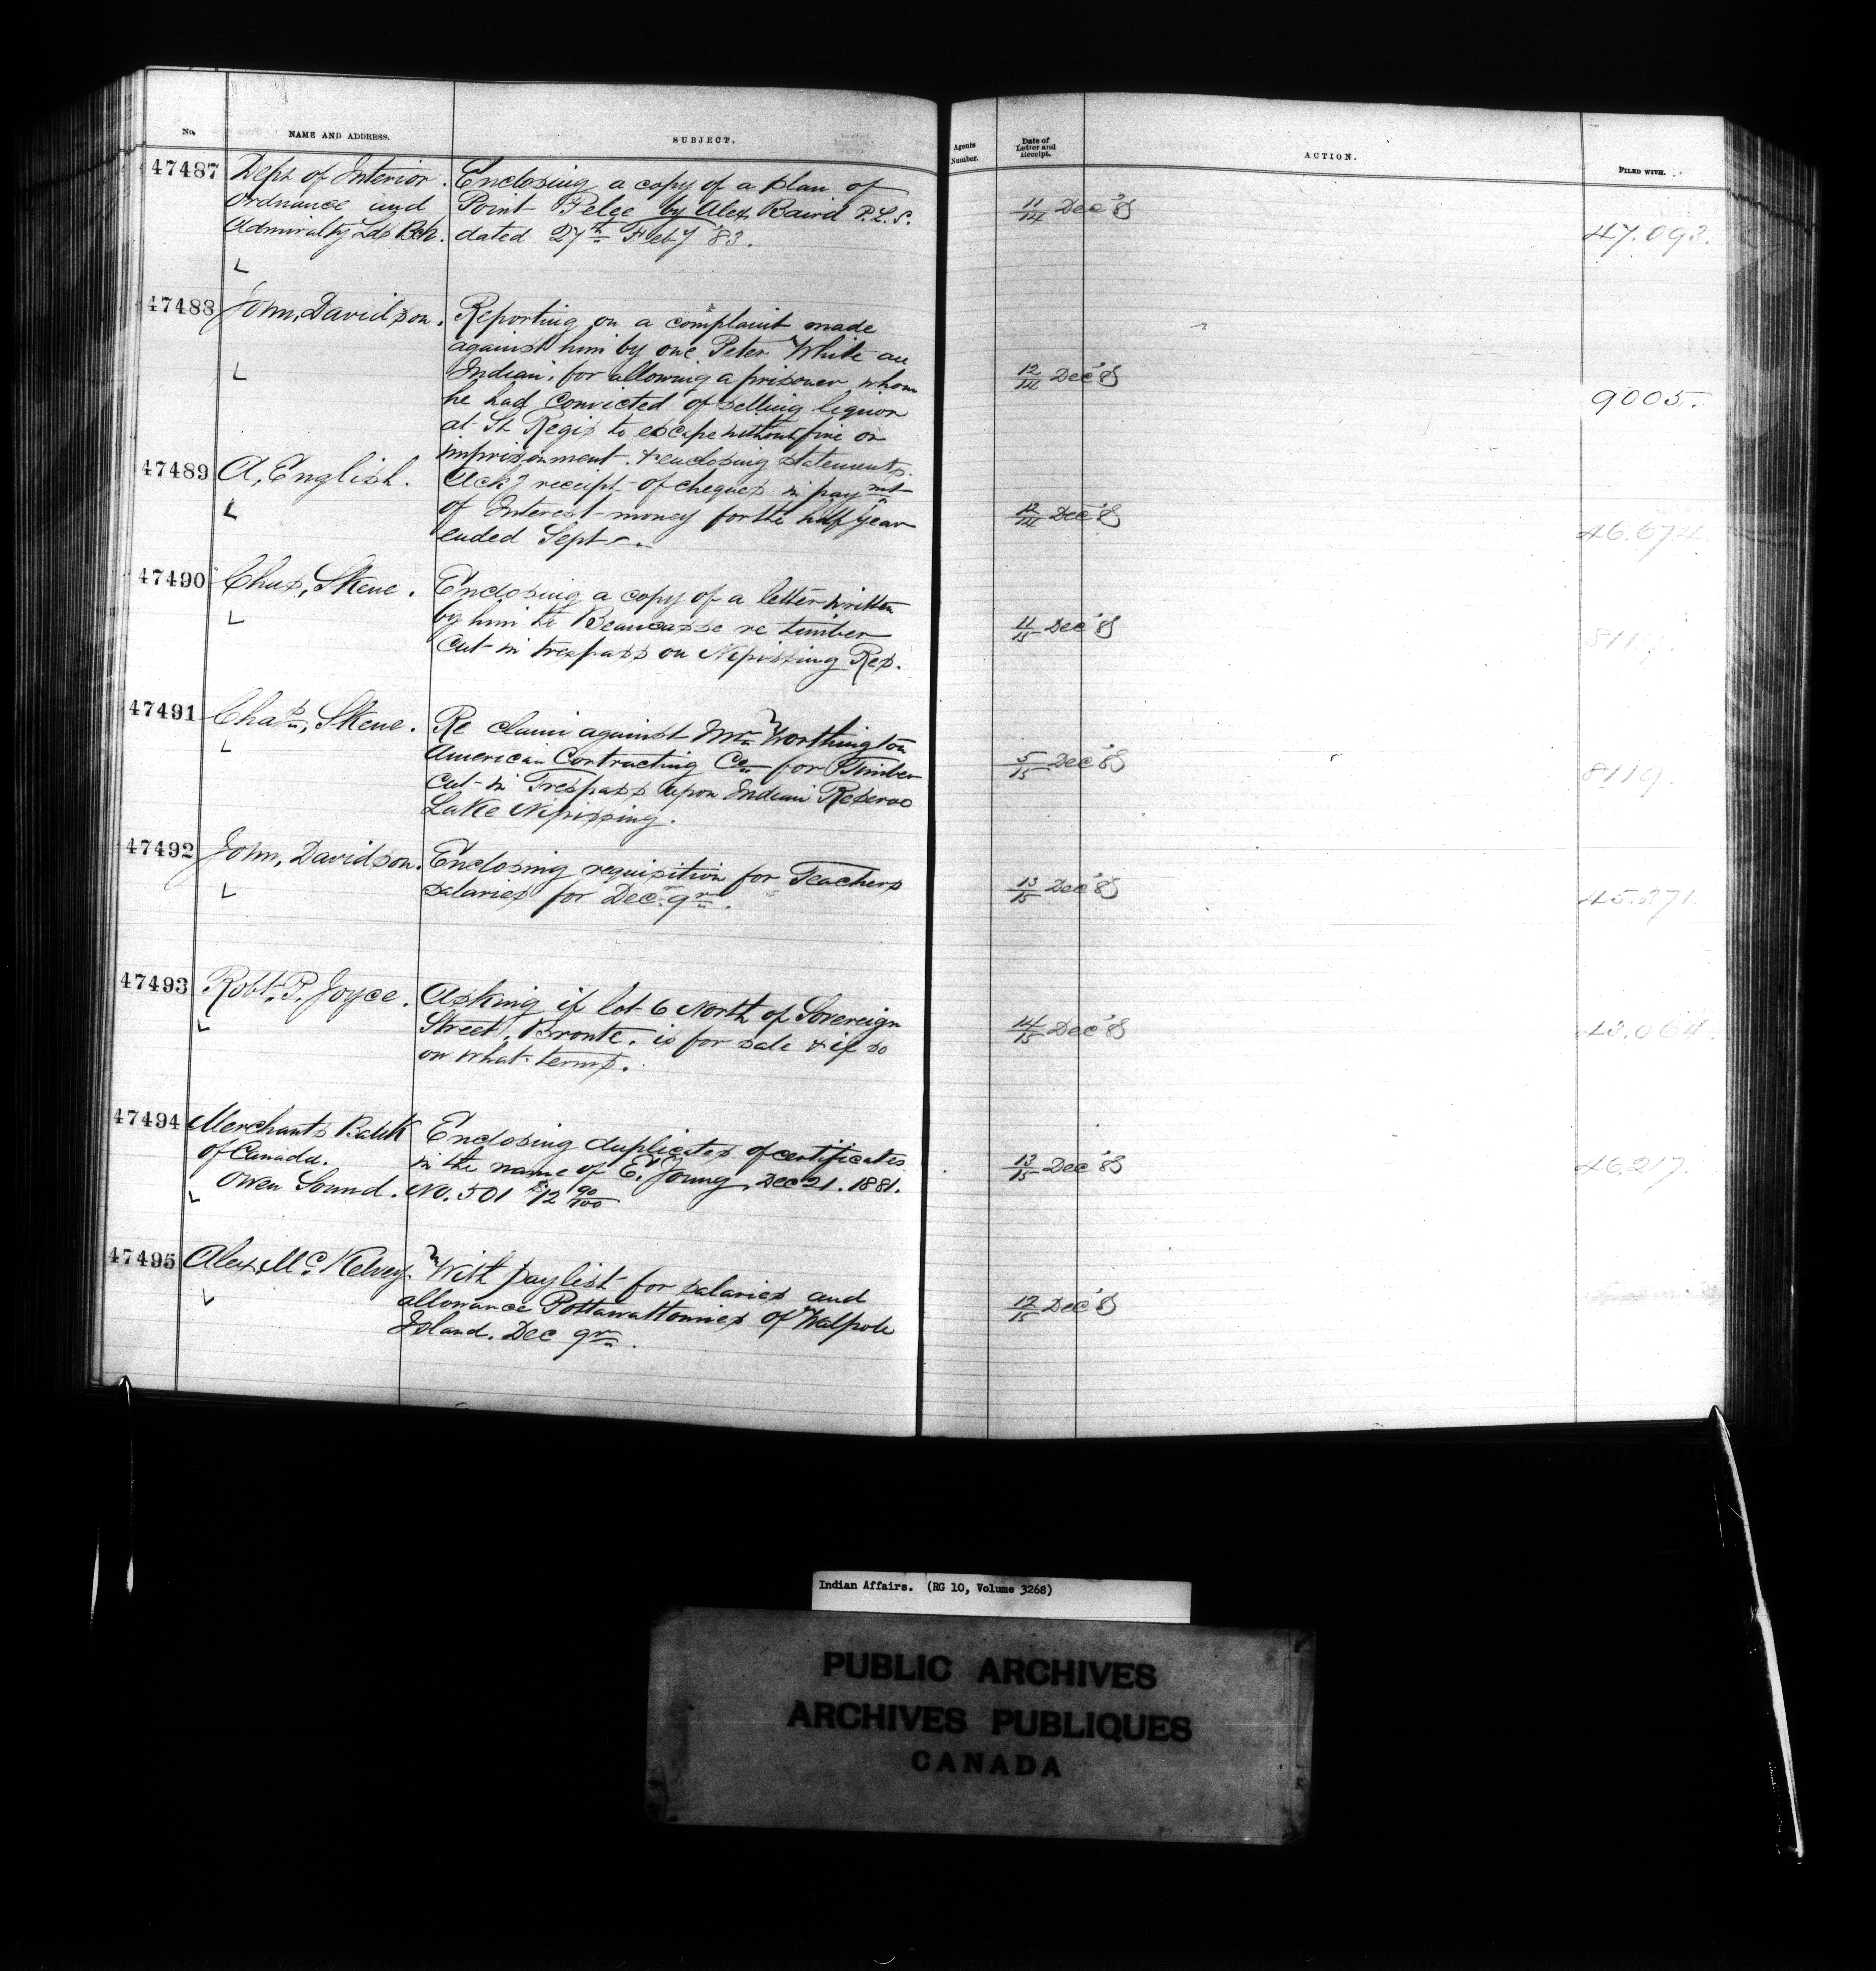 No. NAME AND ADDRESS. SUBJECT. Agents Number. Date of Letter and Receipt. ACTION. FILED WITH.
47487 Dept of Interior. Enclosing a copy of a plan of
Ordnance and Point Pelee by Alex Baird P.L.S. 11/14 Dec '85
Admiralty Lds Bch. dated 27th Feby '83. 47.093.
47488 John, Davidson. Reporting on a complaint made
against him by one Peter White an
Indian, for allowing a prisoner whom 12/14 Dec '85
he had convicted of selling liquor 9005.
at St Regis to escape without fine or
imprisonment. & enclosing statements.
47489 A, English. Ackg receipt of cheques in paymt
of Interest money for the half year 12/14 Dec '85
ended Septr. 46.674.
47490 Chas, Skene. Enclosing a copy of a letter written
by him to Beaucasse re timber 11/15 Dec '85
cut in trespass on Nipissing Res. 8119.
47491 Chas, Skene. Re claim against Mr Worthington
American Contracting Co for Timber 5/15 Dec '85
cut in Trespass upon Indian Reserve 8119.
Lake Nipissing.
47492 John, Davidson. Enclosing requisition for Teachers
salaries for Decr qr. 13/15 Dec '85
45.371.
47493 Robt. P. Joyce. Asking if lot 6 North of Sovereign
Street, Bronte, is for sale & if so 14/15 Dec '85
on what terms.
47494 Merchants Bank Enclosing duplicates of certificates
of Canada. in the name of E. Young, Dec 21. 1881. 13/15 Dec '85 46.217.
Owen Sound. No. 501 $12 90/100
47495 Alex, Mc Kelvey. With paylist for salaries and
allowance Pottawattomies of Walpole 12/15 Dec '85
Island. Dec qr.
Indian Affairs. (RG 10, Volume 3268)
PUBLIC ARCHIVES
ARCHIVES PUBLIQUES
CANADA